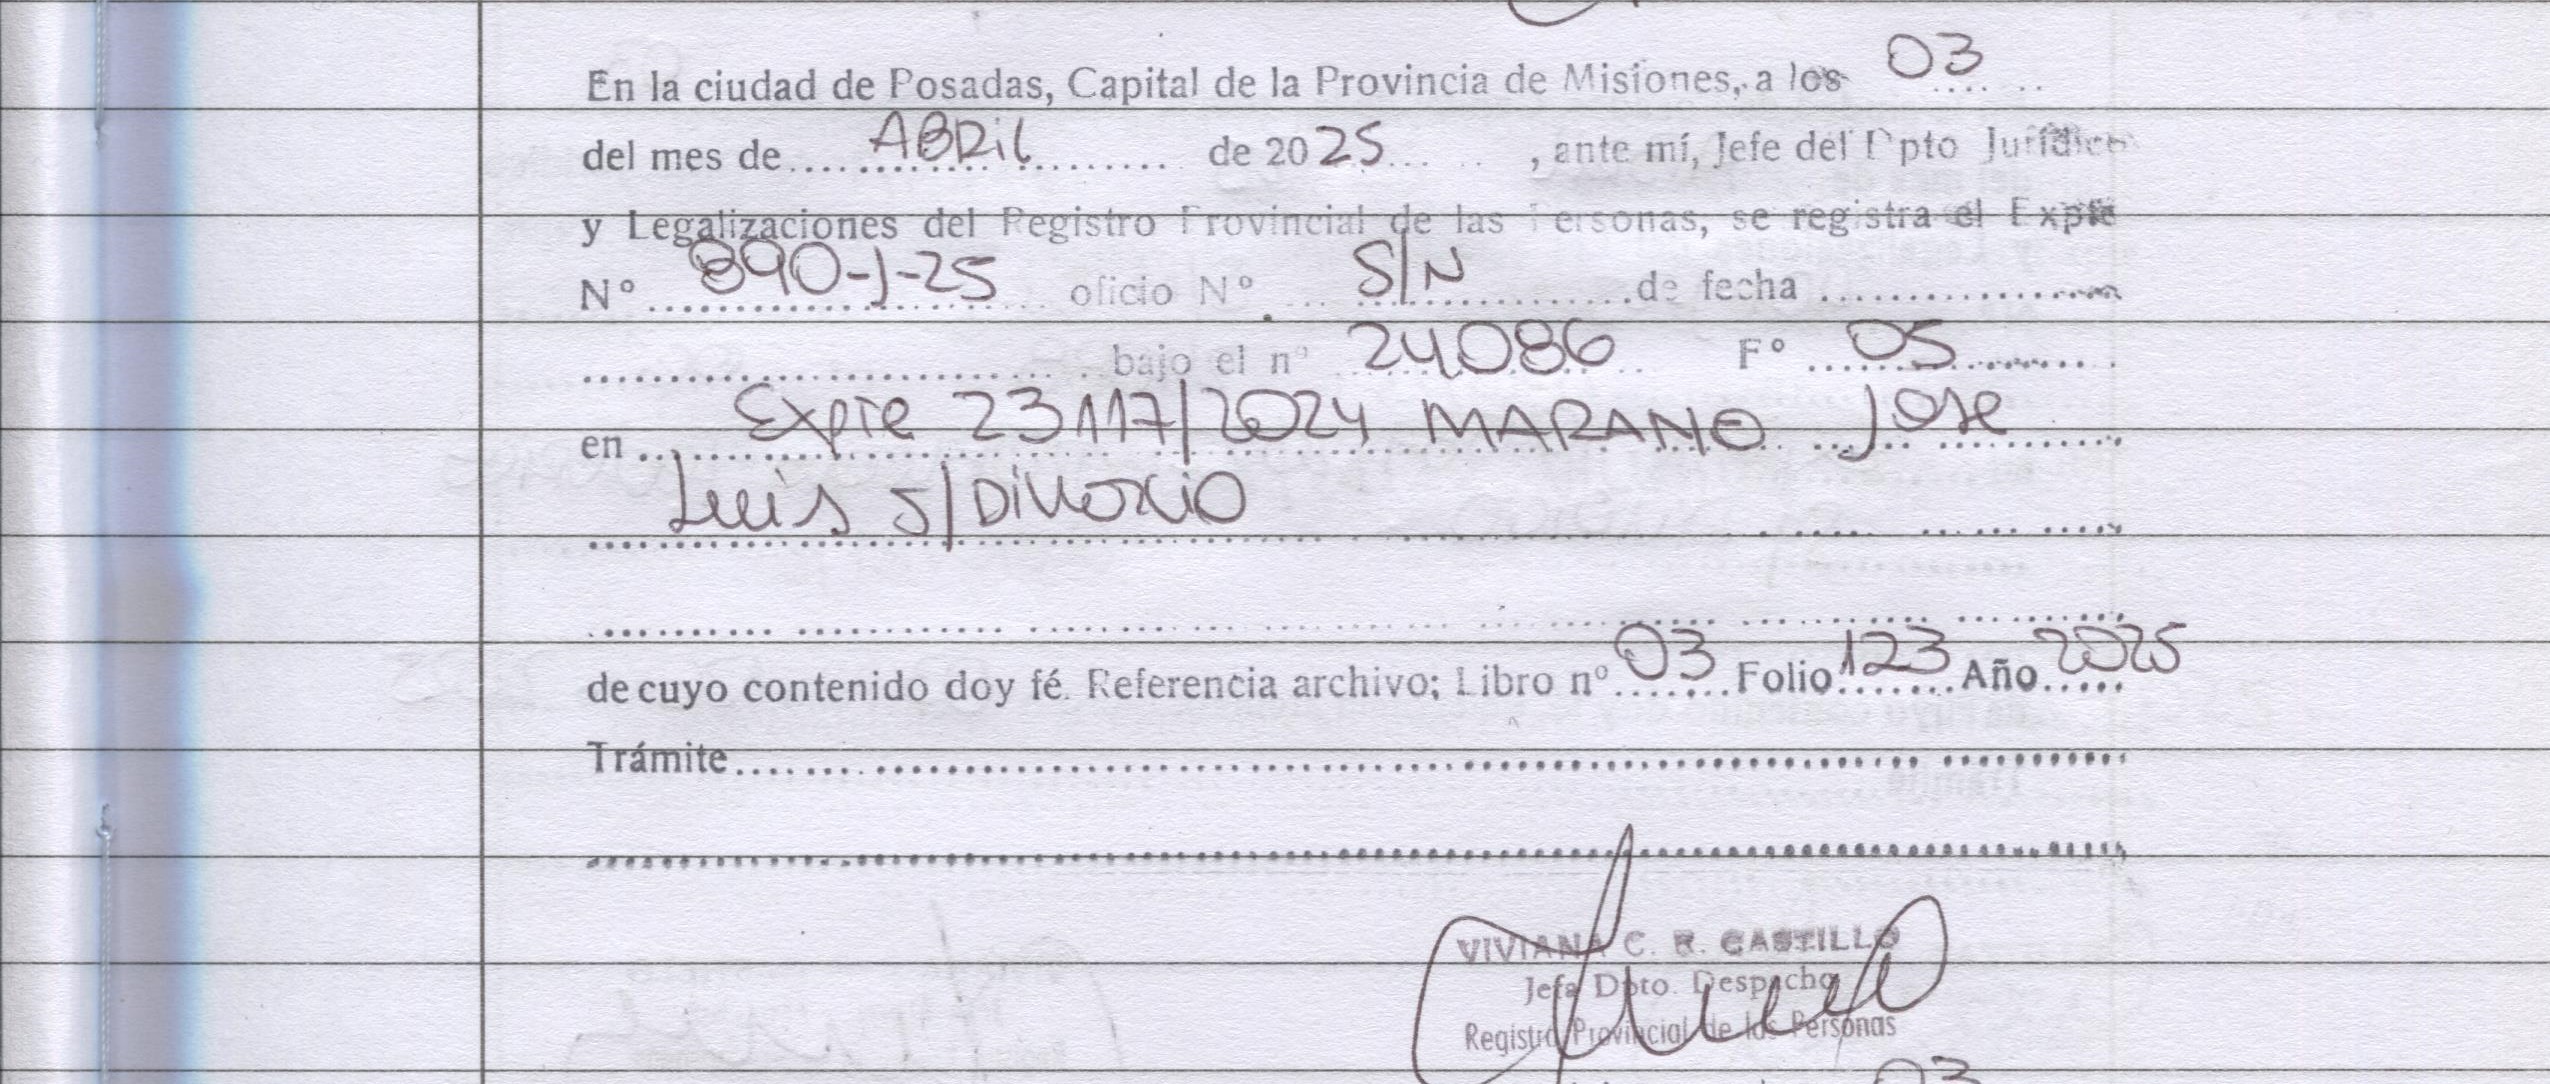 En la ciudad de Posadas, Capital de la Provincia de Misiones, a los 03
del mes de ABRil de 2025, ante mí, Jefe del Dpto Jurídico
y Legalizaciones del Registro Provincial de las Personas, se registra el Expte
N° 890-J-25 oficio N° S/N de fecha
bajo el n° 24086 F° 05
en Expte 23117/2024 MARANO Jose
Luis s/Divorcio
de cuyo contenido doy fé. Referencia archivo; Libro n° 03 Folio 123 Año 2025
Trámite
VIVIANA C. R. CASTILLO
Jefa Dpto. Despacho
Registro Provincial de las Personas
03